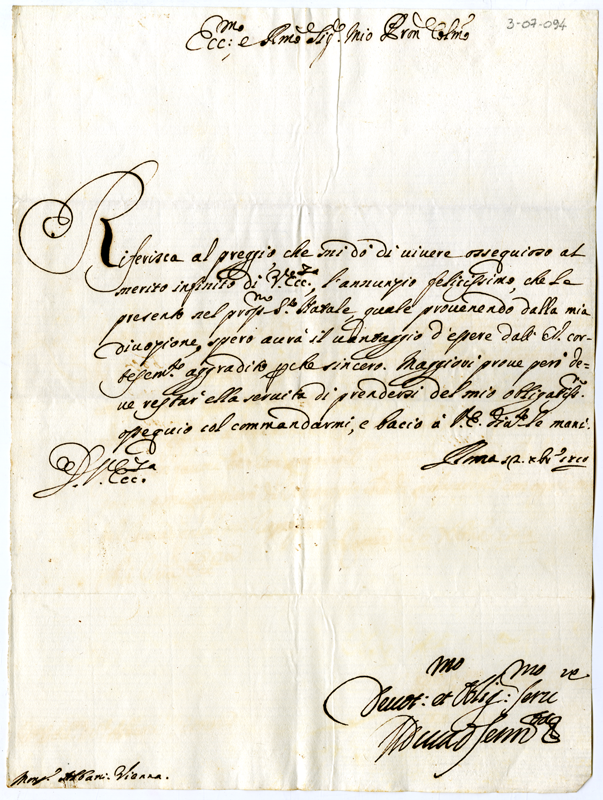 3-07-094
Ecc:mo e Rmo Sig.re Mio Pron Colmo
Riferisca al preggio che mi dò di vivere ossequioso al
merito infinito di V. Ecc.za, l'annunzio felicissimo, che le
presento nel pross.mo S.to Natale, quale provenendo dalla mia
divozione, spero aurà il vantaggio d'essere dall' E.V. cor-
tesem.te aggradito pche sincero. Maggiori prove però de=
ve restar ella servita di prendersi del mio obligatiss.o
ossequio col commandarmi, e bacio à V.E. div.te le mani.
D. V. Ecc.za
Roma
Devot:mo et Oblig:mo Serv.re
Mons.r Albani. Vienna.